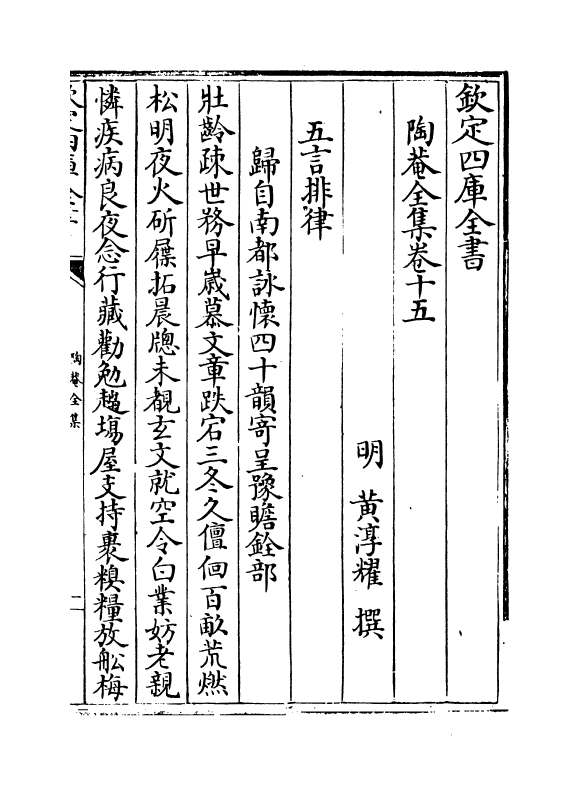 欽定四庫全書
陶菴全集卷十五
明 黃淳耀 撰
五言排律
歸自南都詠懷四十韻寄呈豫瞻銓部
壯齡疎世務早嵗慕文章跌宕三冬久儃佪百畝荒燃
松明夜火斫屧拓晨牕未覩玄文就空令白業妨老親
憐疾病良夜念行藏勸勉趨塲屋支持裹糗糧放舩梅
陶菴全集